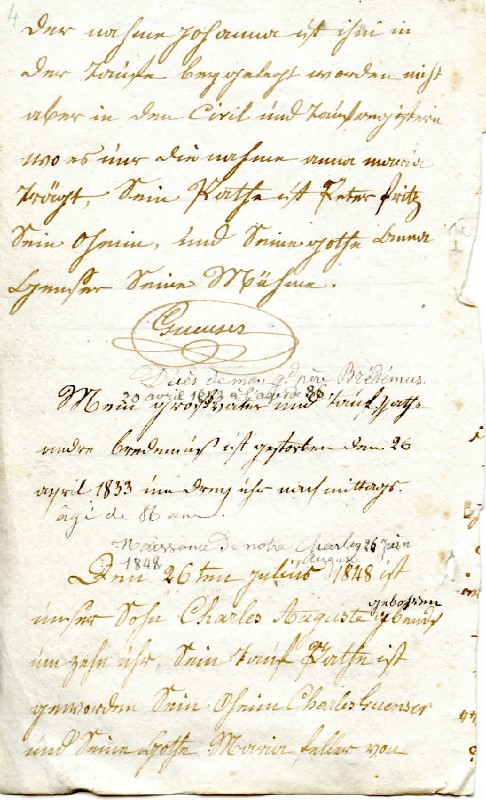 4
der nahme johanna ist ihm in
der Taufe beygelegt worden nicht
aber in den Civil und Taufregistern
wo es nur die nahme anna maria
Trägt, Sein Pathe ist Peter fritz
Sein oheim, und Seine gothe Anna
Genser Seine Mühme.
Guenser
Décès de mon gd père Brédemus.
20 avril 1833 à l'age de 86
Mein großvater und Taufpathe
andre bredemus ist gestorben den 26
april 1833 um drey uhr nachmittags.
âgé de 86 ans
Naissance de notre Charles 26 juin
1848 August
Den 26ten julius 1848 ist
geboren
unser Sohn Charles Auguste abends
um zehn uhr, Sein Tauf Pathe ist
geworden Sein oheim Charles Guenser
und Seine Gothe Maria feller von